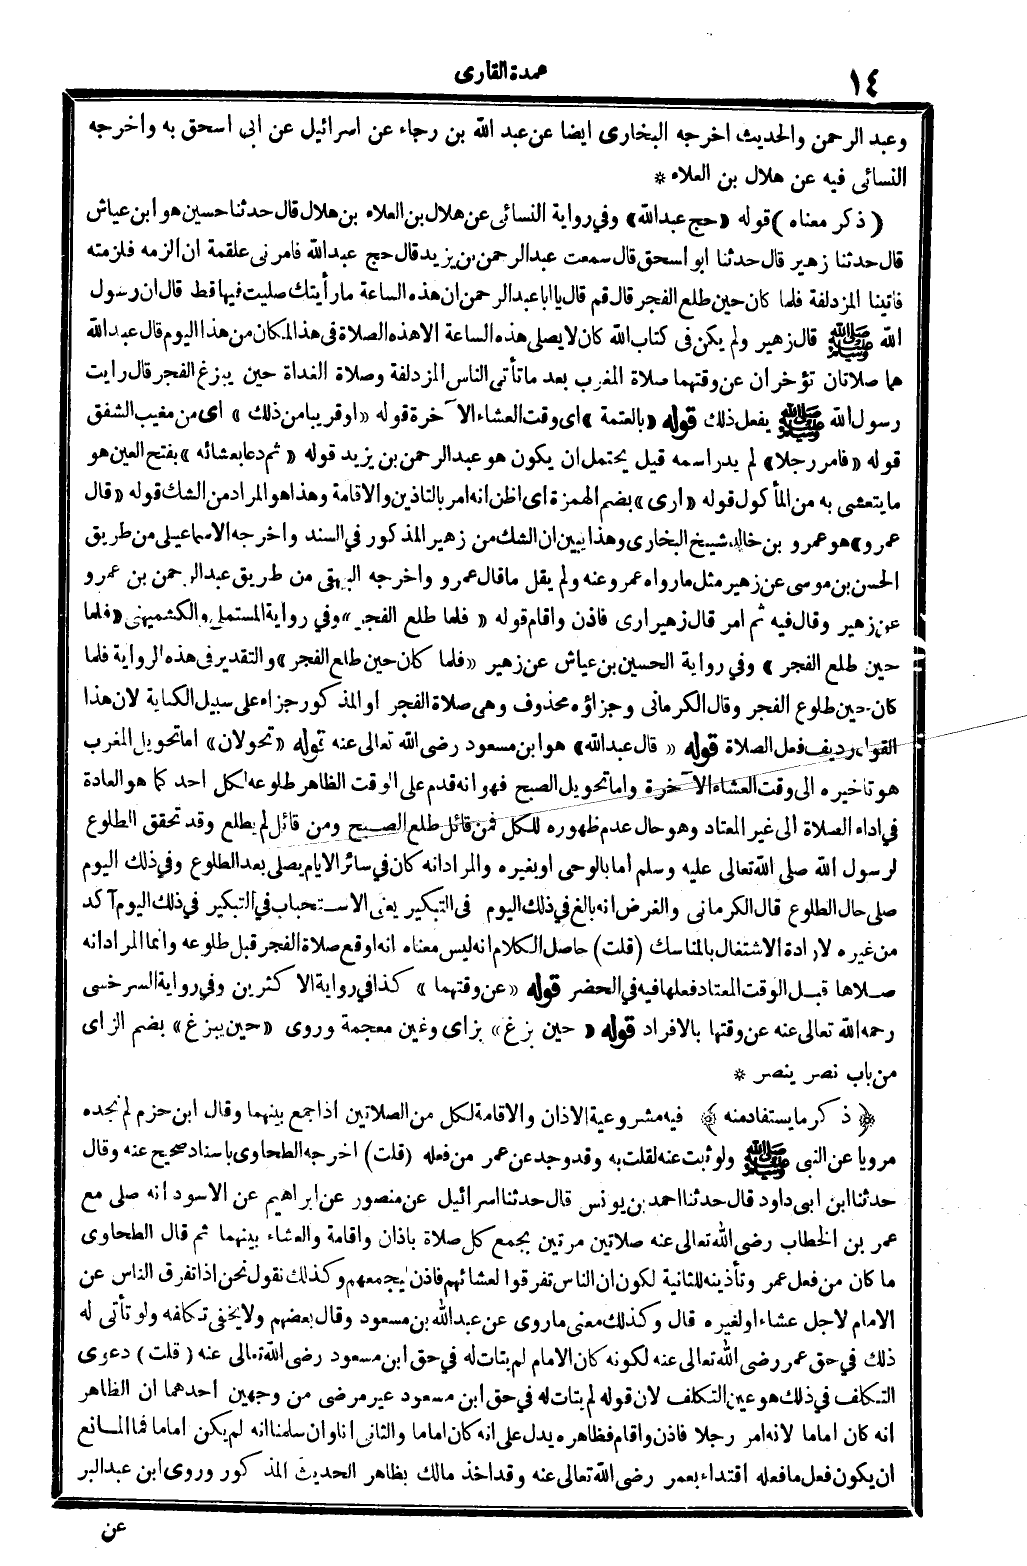 ١٤
عمدة القارى
وعبد الرحمن والحديث اخرجه البخارى ايضا عن عبد الله بن رجاء عن اسرائيل عن ابى اسحق به واخرجه
النسائى فيه عن هلال بن العلاء *
(ذكر معناه) قوله «حج عبدالله» وفى رواية النسائى عن هلال بن العلاء بن هلال قال حدثنا حسين هو ابن عياش
قال حدثنا زهير قال حدثنا ابو اسحق قال سمعت عبدالرحمن بن يزيد قال حج عبدالله فامرنى علقمة ان الزمه فلزمته
فاتينا المزدلفة فلما كان حين طلع الفجر قال قم قال يا ابا عبدالرحمن ان هذه الساعة ما رأيتك صليت فيها قط قال ان رسول
الله ﷺ قال زهير ولم يكن فى كتاب الله كان لا يصلى هذه الساعة الا هذه الصلاة فى هذا المكان من هذا اليوم قال عبد الله
هما صلاتان تؤخران عن وقتهما صلاة المغرب بعد ما تأتى الناس المزدلفة وصلاة الغداة حين يبزغ الفجر قال رايت
رسول الله ﷺ يفعل ذلك قوله «بالعتمة» اى وقت العشاء الآخرة قوله «اوقريبا من ذلك» اى من مغيب الشفق
قوله «فامر رجلا» لم يدر اسمه قيل يحتمل ان يكون هو عبدالرحمن بن يزيد قوله «ثم دعا بعشائه» بفتح العين هو
ما يتعشى به من المأكول قوله «ارى» بضم الهمزة اى اظن انه امر بالتاذين والاقامة وهذا هو المراد من الشك قوله «قال
عمرو» هو عمرو بن خالد شيخ البخارى وهذا يبين ان الشك من زهير المذكور فى السند واخرجه الاسماعيلى من طريق
الحسن بن موسى عن زهير مثل مارواه عمرو عنه ولم يقل ماقال عمرو واخرجه البيهقى من طريق عبدالرحمن بن عمرو
عن زهير وقال فيه ثم امر قال زهير ارى فاذن واقام قوله «فلما طلع الفجر» وفى رواية المستملى والكشميهنى «فلما
حين طلع الفجر» وفى رواية الحسين بن عياش عن زهير «فلما كان حين طلع الفجر» والتقدير فى هذه الرواية فلما
كان حين طلوع الفجر وقال الكرمانى وجزاؤه محذوف وهى صلاة الفجر او المذكور جزاء على سبيل الكناية لان هذا
القول رديف فعل الصلاة قوله «قال عبدالله» هو ابن مسعود رضى الله تعالى عنه قوله «تحولان» اما تحويل المغرب
هو تاخيره الى وقت العشاء الآخرة واما تحويل الصبح فهو انه قدم على الوقت الظاهر طلوعه لكل احد كما هو العادة
فى اداء الصلاة الى غير المعتاد وهو حال عدم ظهوره للكل فمن قائل طلع الصبح ومن قائل لم يطلع وقد تحقق الطلوع
لرسول الله صلى الله تعالى عليه وسلم اما بالوحى او بغيره والمراد انه كان فى سائر الايام يصلى بعد الطلوع وفى ذلك اليوم
صلى حال الطلوع قال الكرمانى والغرض انه بالغ فى ذلك اليوم فى التبكير يعنى الاستحباب فى التبكير فى ذلك اليوم آكد
من غيره لارادة الاشتغال بالمناسك (قلت) حاصل الكلام انه ليس معناه انه اوقع صلاة الفجر قبل طلوعه وانما المراد انه
صلاها قبل الوقت المعتاد فعلها فيه فى الحضر قوله «عن وقتهما» كذا فى رواية الاكثرين وفى رواية السرخسى
رحمه الله تعالى عنه عن وقتها بالافراد قوله «حين بزغ» بزاى وغين معجمة وروى «حين يبزغ» بضم الزاى
من باب نصر ينصر *
﴿ذكر ما يستفاد منه﴾ فيه مشروعية الاذان والاقامة لكل من الصلاتين اذا جمع بينهما وقال ابن حزم لم نجده
مرويا عن النبى ﷺ ولو ثبت عنه لقلت به وقد وجد عن عمر من فعله (قلت) اخرجه الطحاوى باسناد صحيح عنه وقال
حدثنا ابن ابى داود قال حدثنا احمد بن يونس قال حدثنا اسرائيل عن منصور عن ابراهيم عن الاسود انه صلى مع
عمر بن الخطاب رضى الله تعالى عنه صلاتين مرتين بجمع كل صلاة باذان واقامة والعشاء بينهما ثم قال الطحاوى
ما كان من فعل عمر وتأذينه للثانية لكون ان الناس تفرقوا لعشائهم فاذن ليجمعهم وكذلك نقول نحن اذا تفرق الناس عن
الامام لاجل عشاء او لغيره قال وكذلك معنى ماروى عن عبدالله بن مسعود وقال بعضهم ولا يخفى تكلفه ولو تأتى له
ذلك فى حق عمر رضى الله تعالى عنه لكونه كان الامام لم يتات له فى حق ابن مسعود رضى الله تعالى عنه (قلت) دعوى
التكلف فى ذلك هو عين التكلف لان قوله لم يتات له فى حق ابن مسعود غير مرضى من وجهين احدهما ان الظاهر
انه كان اماما لانه امر رجلا فاذن واقام فظاهره يدل على انه كان اماما والثانى انا وان سلمنا انه لم يكن اماما فما المانع
ان يكون فعل ما فعله اقتداء بعمر رضى الله تعالى عنه وقد اخذ مالك بظاهر الحديث المذكور وروى ابن عبدالبر
عن